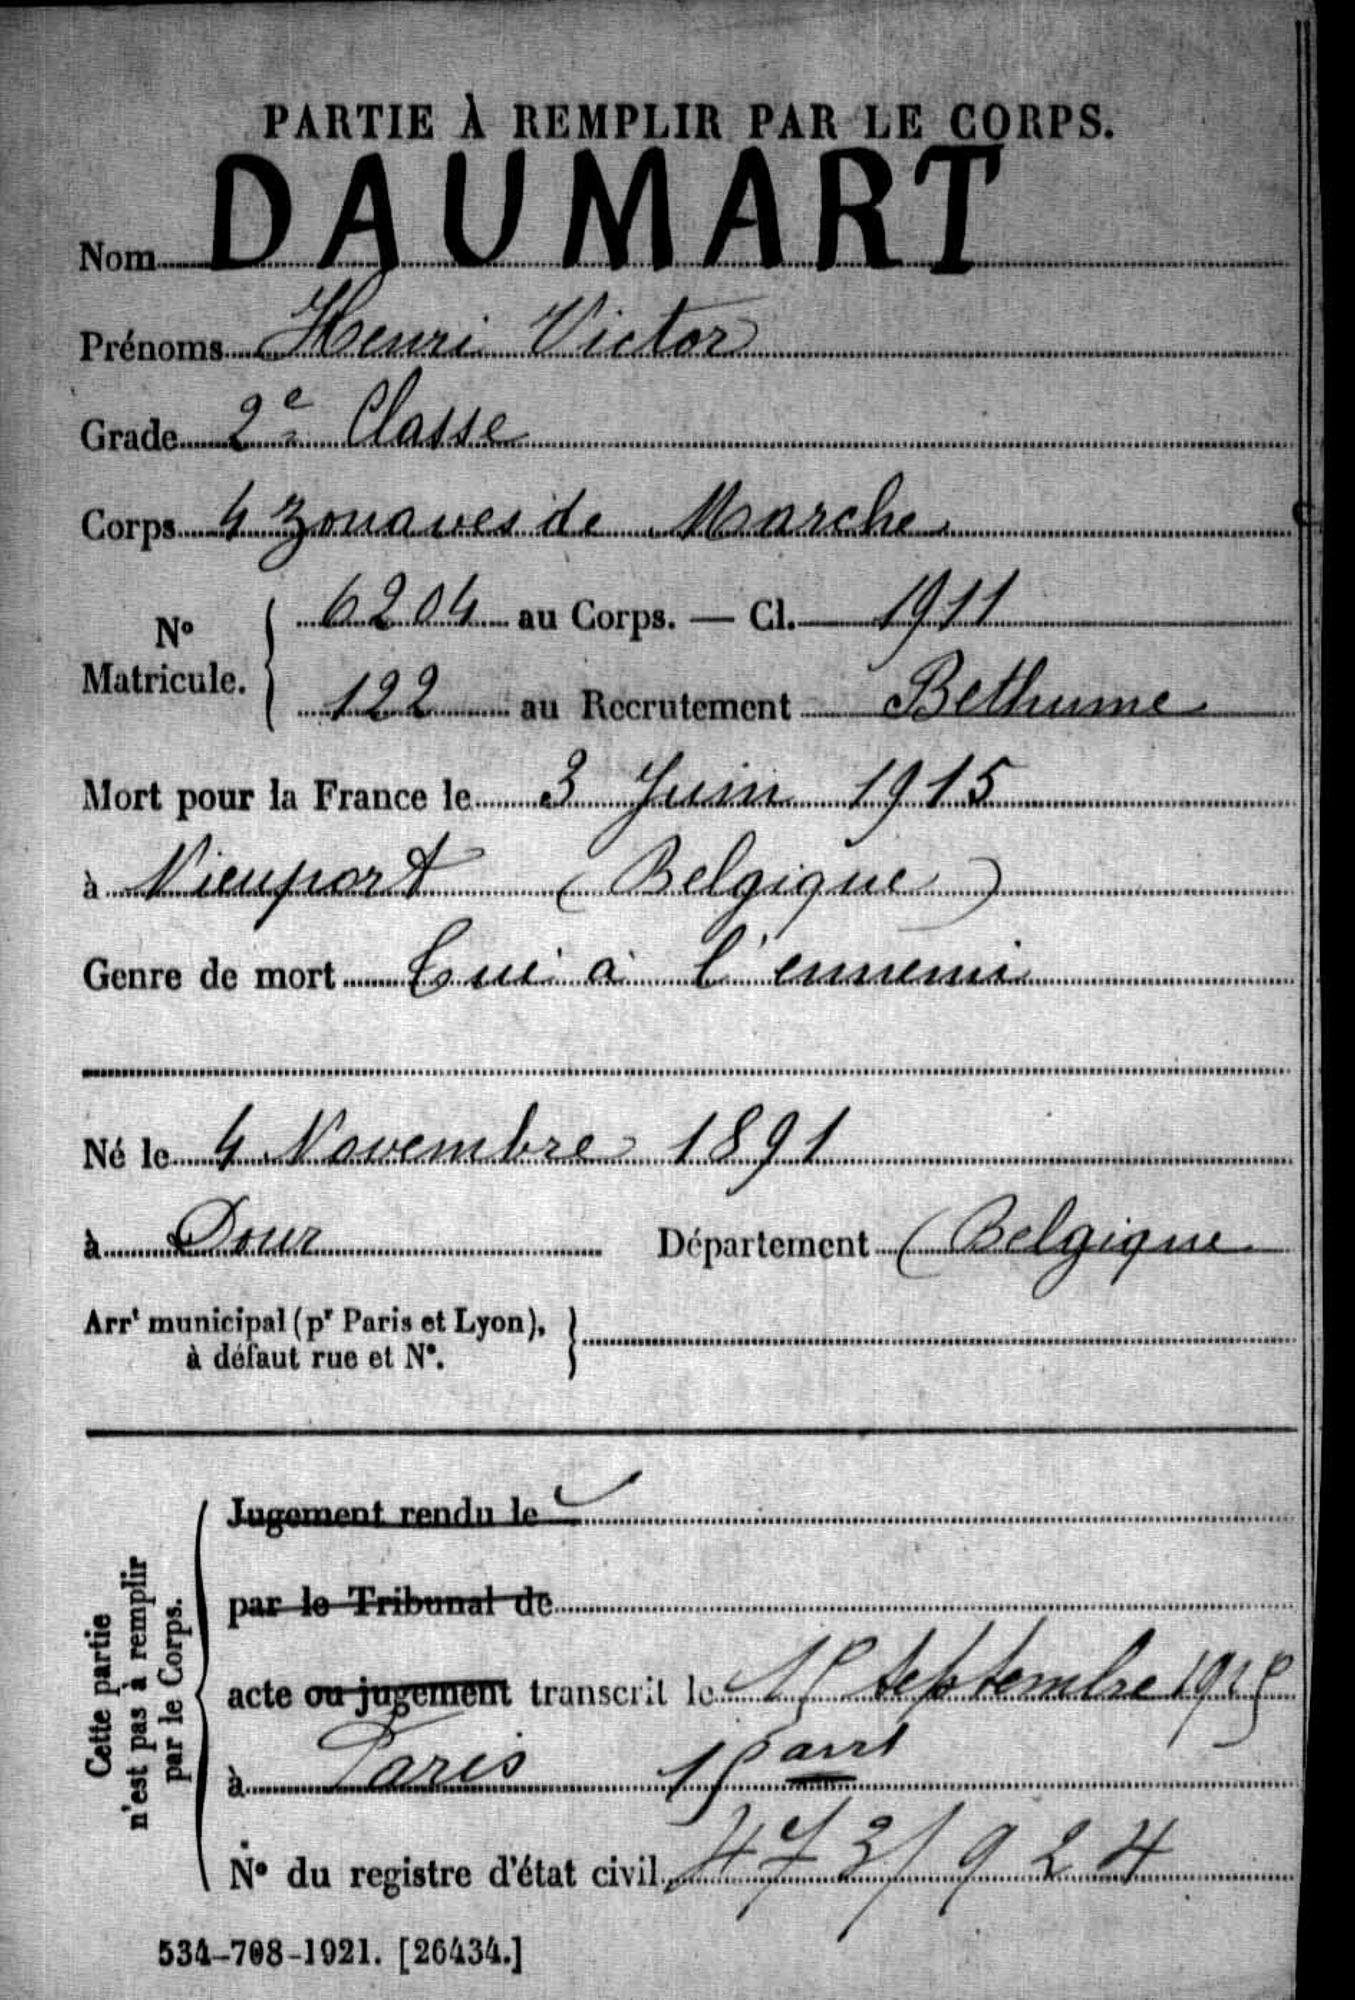 PARTIE À REMPLIR PAR LE CORPS.
Nom DAUMART
Prénoms Henri Victor
Grade 2e Classe
Corps 4 Zouaves de Marche
N° Matricule. { 6204 au Corps. — Cl. 1911
122 au Recrutement Bethume
Mort pour la France le 3 Juin 1915
à Nieuport (Belgique)
Genre de mort Tué à l'ennemi
Né le 4 Novembre 1891
à Dour Département (Belgique
Arrt municipal (pr Paris et Lyon), à défaut rue et N°. }
Cette partie n'est pas à remplir par le Corps.
Jugement rendu le
par le Tribunal de
acte ou jugement transcrit le 15 Septembre 1915
à Paris 15e arrt
N° du registre d'état civil
534-708-1921. [26434.]